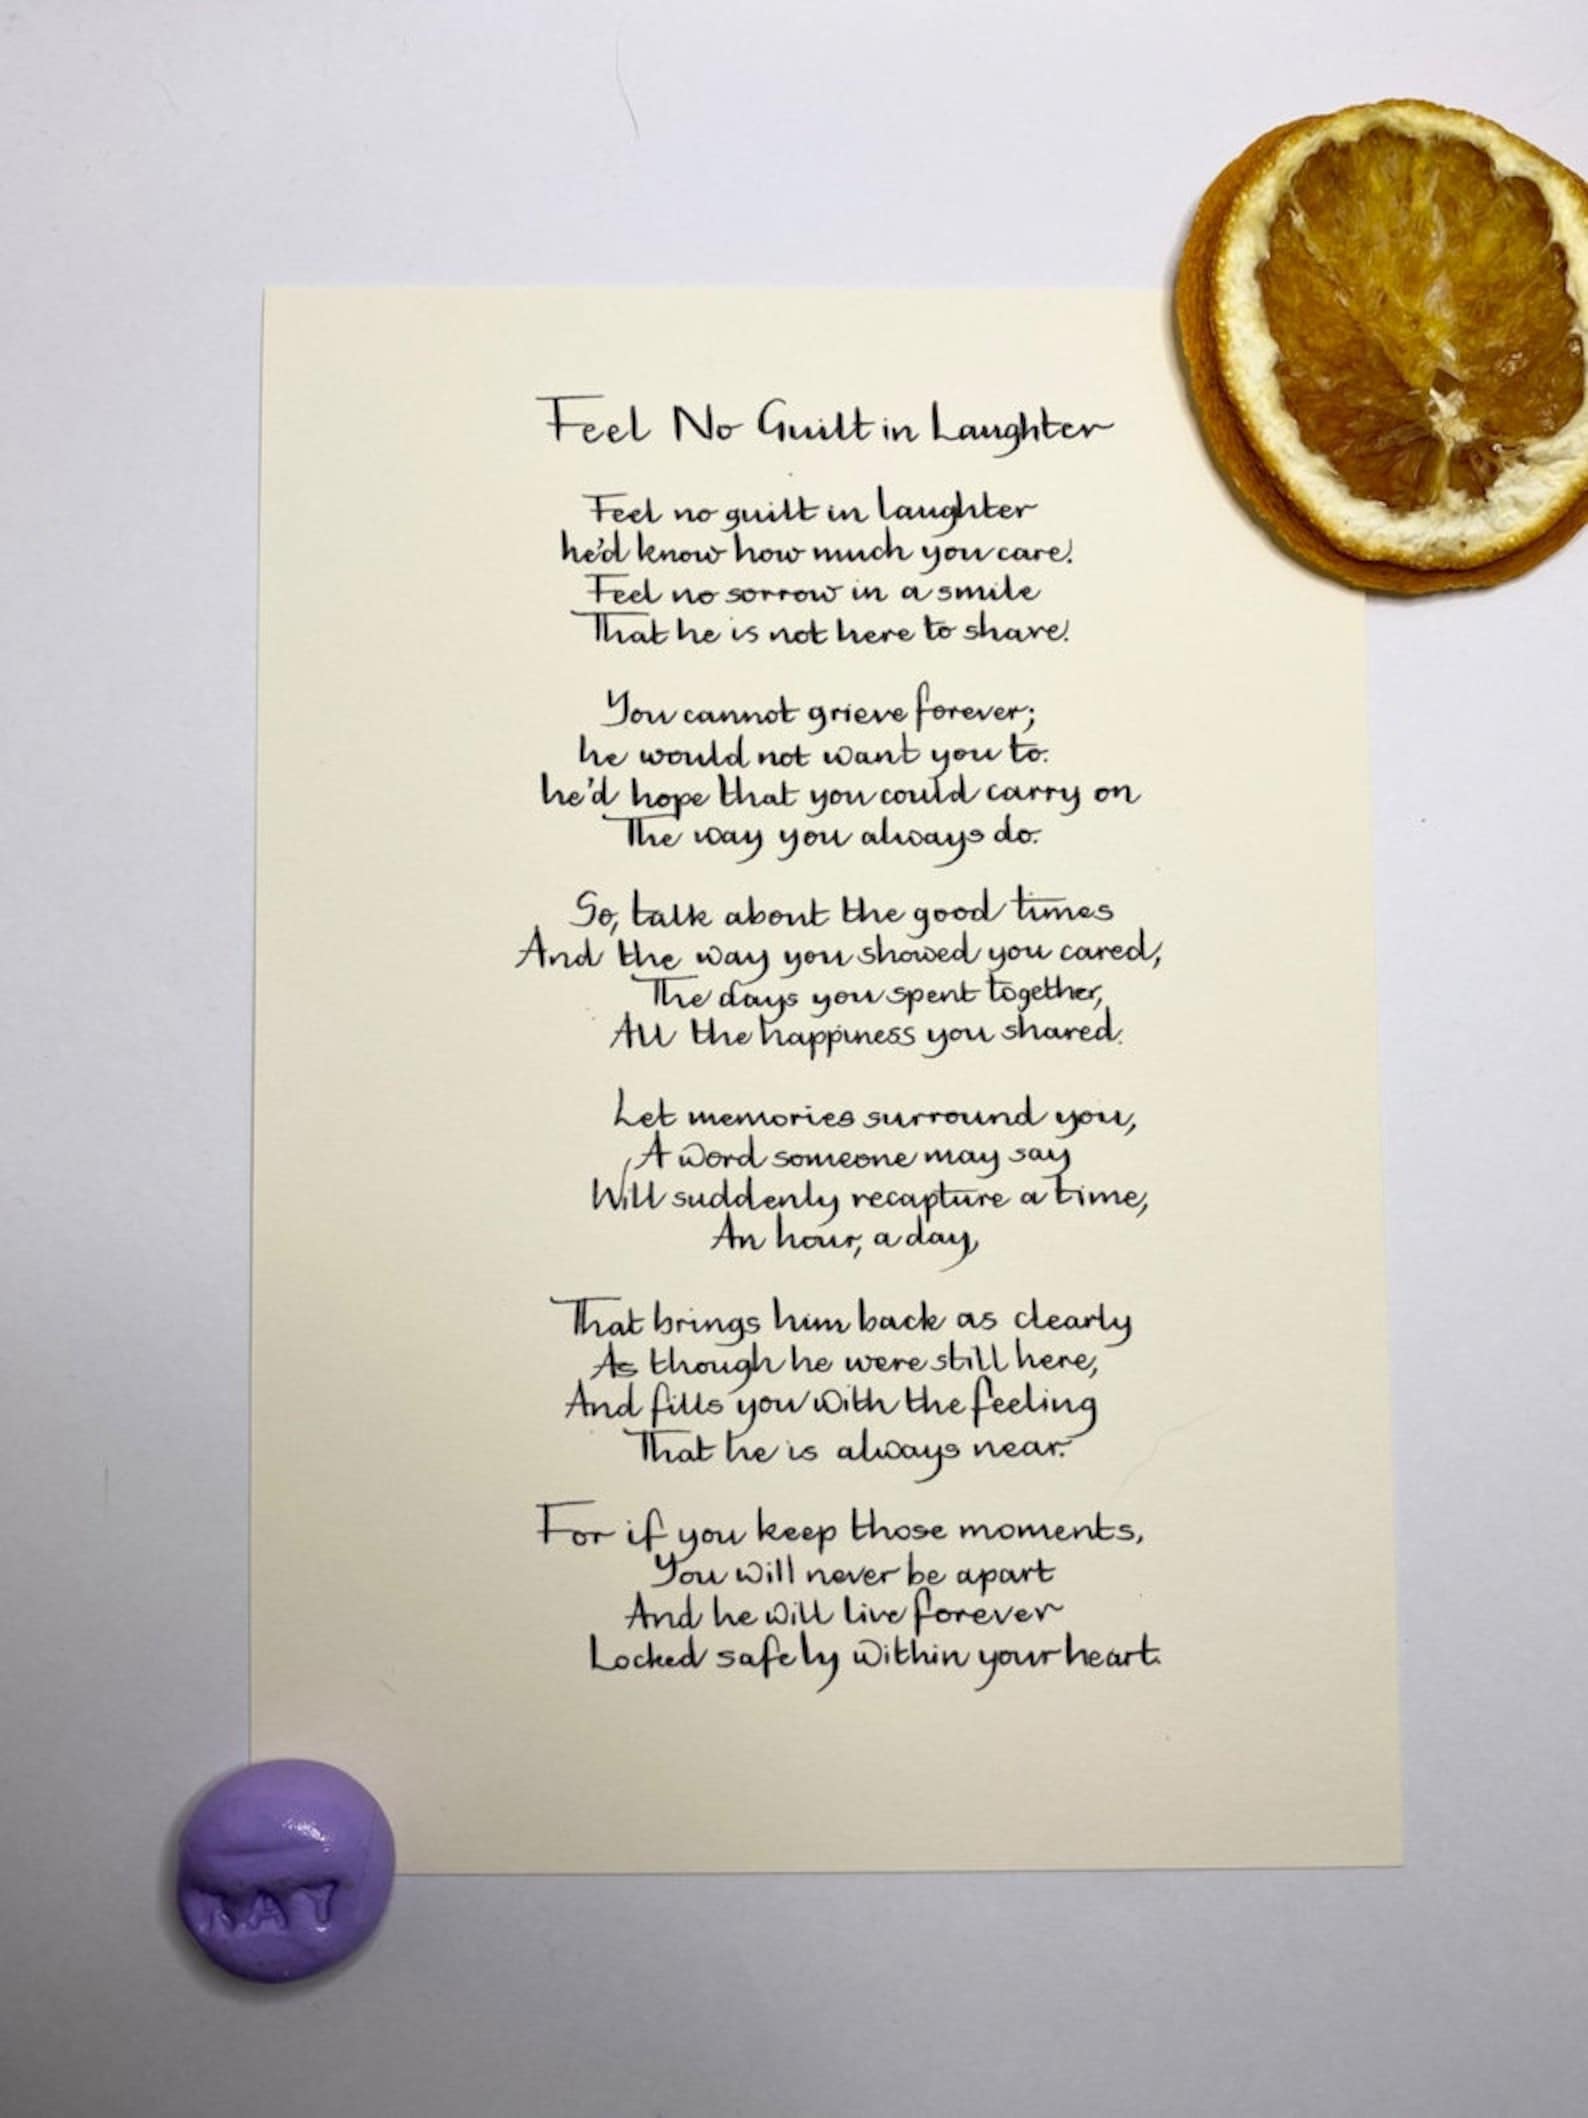 Feel No Guilt in Laughter
Feel no guilt in laughter
he'd know how much you care.
Feel no sorrow in a smile
That he is not here to share.
You cannot grieve forever;
he would not want you to.
he'd hope that you could carry on
The way you always do.
So, talk about the good times
And the way you showed you cared,
The days you spent together,
All the happiness you shared.
Let memories surround you,
A word someone may say
Will suddenly recapture a time,
An hour, a day,
That brings him back as clearly
As though he were still here,
And fills you with the feeling
That he is always near.
For if you keep those moments,
You will never be apart
And he will live forever
Locked safely within your heart.
NAY